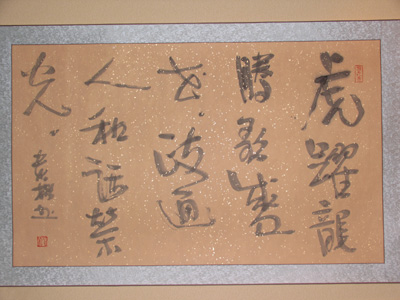 虎躍龍
騰歌盛
世政通
人和譜榮
光